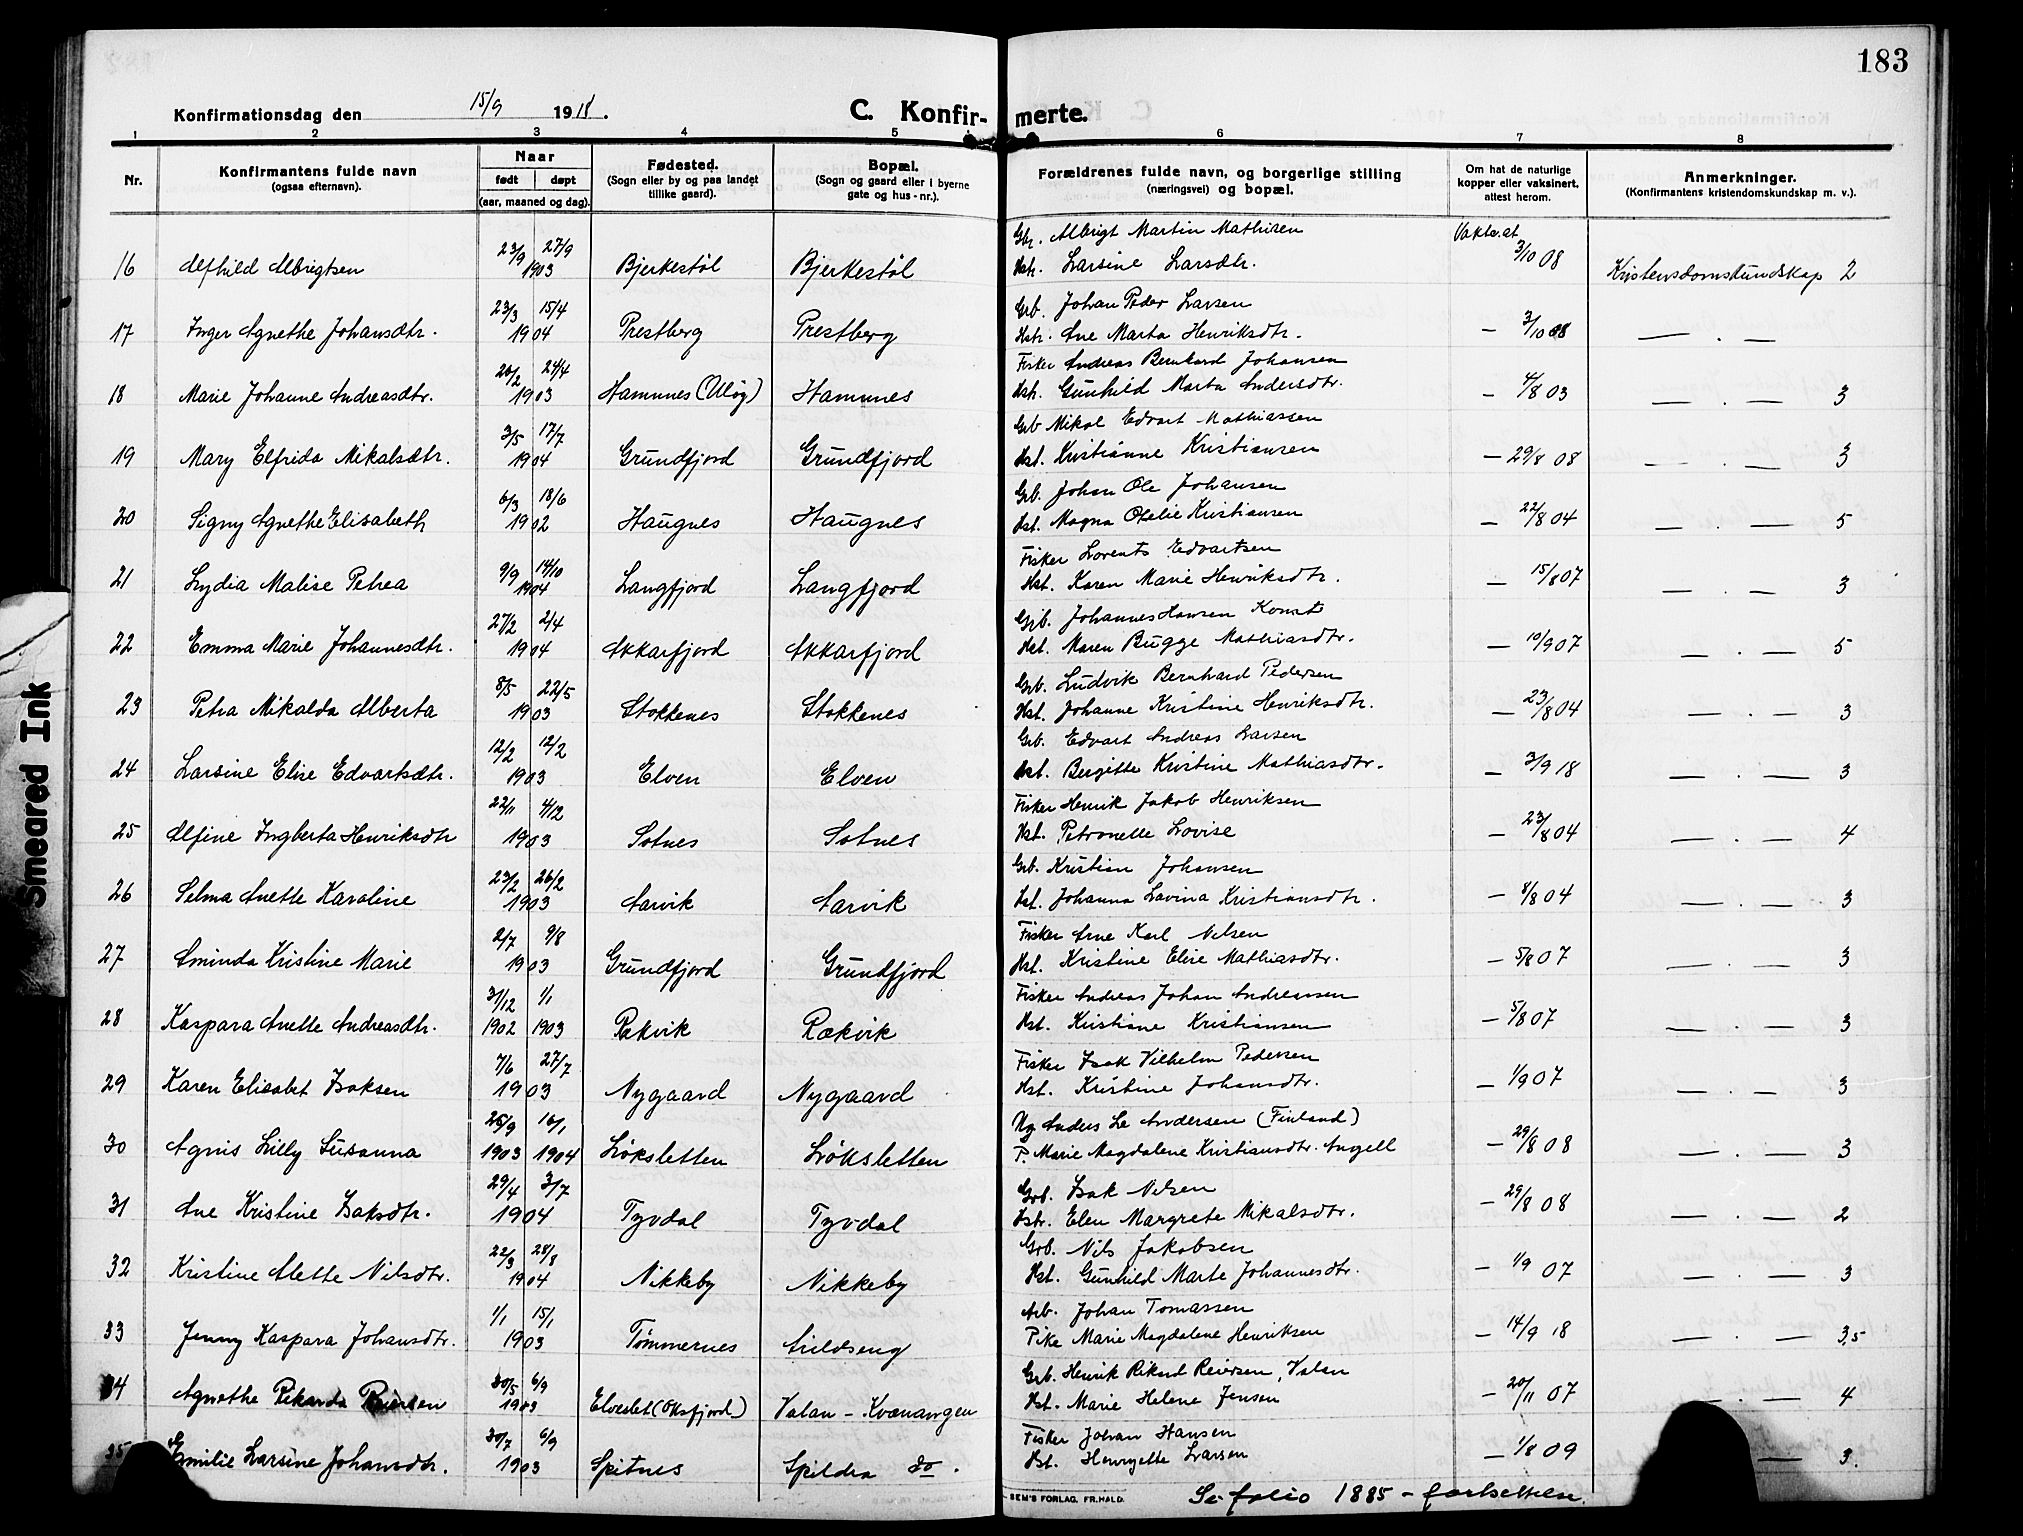 183
Konfirmationsdag den 15/9 1918.
C. Konfir- merte.
1 2 3 4 5 6 7 8
Nr.
Konfirmantens fulde navn
(ogsaa efternavn).
Naar
født døpt
(aar, maaned og dag).
Fødested.
(Sogn eller by og paa landet
tillike gaard).
Bopæl.
(Sogn og gaard eller i byerne
gate og hus-nr.).
Forældrenes fulde navn, og borgerlige stilling
(næringsvei) og bopæl.
Om hat de naturlige
kopper eller vaksinert,
attest herom.
Anmerkninger.
(Konfirmantens kristendomskundskap m. v.).
23/9 27/9 Gbr. Albrigt Martin Mathisen Vaks.at
16 Alfhild Albrigtsen 1903 Bjerkestøl Bjerkestøl Hstr. Larsine Larsdtr. 3/10 08 Kristensdomskundskap 2
23/3 15/4 Grb. Johan Peder Larsen
17 Inger Agnethe Johansdtr. 1904 Prestberg Prestberg Hstr. Ane Marta Henriksdtr. — 3/10 08 — . —
20/2 24/4 Fisker Andreas Bernhard Johansen
18 Marie Johanne Andreasdtr. 1903 Hamnnes (Uløy) Hamnnes Hst. Gunhild Marta Andersdtr. — 4/8 03 — . — 3
3/5 17/7 Grb Mikal Edvart Mathiassen
19 Mary Elfrida Mikalsdtr. 1904 Grundfjord Grundfjord Hst. Kristianne Kristiansen — 29/8 08 — . — 3
6/3 18/6 Grb. Johan Ole Johansen
20 Signy Agnethe Elisabeth 1902 Haugnes Haugnes Hst. Magna Otelie Kristiansen — 22/8 04 — . — 5
9/9 14/10 Fisker Lorents Edvartsen
21 Lydia Malise Petrea 1904 Langfjord Langfjord Hst. Karen Marie Henriksdtr. — 15/8 07 — . — 3
27/2 2/4 Grb. Johannes Hansen
22 Emma Marie Johannesdtr. 1904 Akkarfjord Akkarfjord Hst. Maren Bugge Mathiasdtr. — 10/9 07 — . — 5
8/5 22/5 Grb. Ludvik Bernhard Pedersen
23 Petra Mikalda Alberta 1903 Stokkenes Stokkenes Hst. Johanne Kristine Henriksdtr. — 23/8 04 — . — 3
12/2 12/2 Grb. Edvart Andreas Larsen
24 Larsine Elise Edvartsdtr. 1903 Elven Elven Hst. Bergitte Kristine Mathiasdtr. — 3/9 18 — . — 3
22/11 4/12 Fisker Henrik Jakob Henriksen
25 Alfine Ingberta Henriksdtr 1903 Sotnes Sotnes Hst. Petronelle Lovise — 23/8 04 — . — 4
23/2 26/2 Grb. Kristian Johansen
26 Selma Anette Karoline 1903 Aarvik Aarvik Hst. Johanna Lavina Kristiansdtr. — 8/8 04 — . — 3
2/7 9/8 Fisker Arne Karl Nilsen
27 Aminda Kristine Marie 1903 Grundfjord Grundfjord Hst. Kristine Elise Mathiasdtr. — 5/8 07 — . — 3
31/12 1/1 Fisker Andreas Johan Andreassen
28 Kaspara Anette Andreasdtr. 1902 1903 Rækvik Rækvik Hst. Kristiane Kristiansen — 5/8 07 — . — 3
7/6 27/7 Fisker Isak Vilhelm Pedersen
29 Karen Elisabet Isaksen 1903 Nygaard Nygaard Hst. Kristine Johansdtr. — 1/9 07 — . — 3
25/9 16/1 Ug Anders Le Andersen (Finland)
30 Agnis Lilly Susanna 1903 1904 Løksletten Løksletten P. Marie Magdalene Kristiansdtr. Angell — 29/8 08 — . — 3
29/4 3/7 Grb. Isak Nilsen
31 Ane Kristine Isaksdtr. 1904 Tyvdal Tyvdal Hstr. Elen Margrete Mikalsdtr. — 29/8 08 — . — 2
22/3 28/8 Grb. Nils Jakobsen
32 Kristine Alette Nilsdtr. 1904 Nikkeby Nikkeby Hst. Gunhild Marte Johannesdtr. — 1/9 07 — . — 3
1/1 15/1 Arb. Johan Tomassen
33 Jenny Kaspara Johansdtr. 1903 Tømmernes Arildseng Pike Marie Magdalene Henriksen — 14/9 18 — . — 3,5
30/5 6/9 Grb. Henrik Rikard Reiersen, Valan
34 Agnethe Rikarda Reiersen 1903 Elveslet (Oksfjord) Valan - Kvænangen Hst. Marie Helene Jensen — 20/11 07 4
30/7 6/9 Fisker Johan Hansen
35 Emilie Larsine Johansdtr. 1903 Spitnes Spildra do. Hst. Henryette Larsen — 1/8 09 — 3.
SEM'S FORLAG, FR.HALD.
Se folio 1885 - fortsettelse.
Smeared Ink